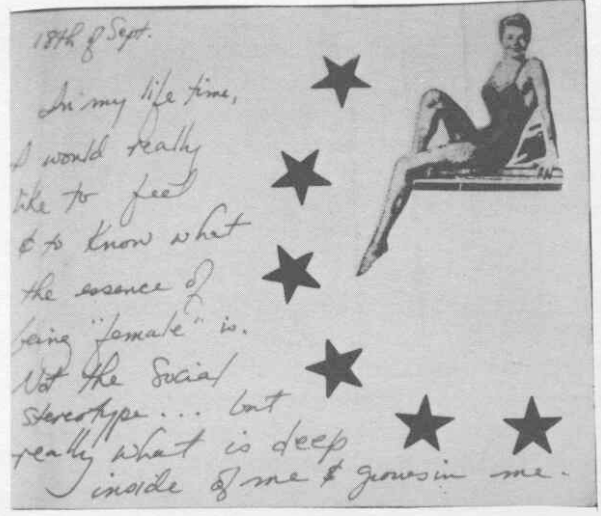 18th of Sept.
In my life time,
I would really
like to feel
& to know what
the essence of
being "female" is.
Not the Social
stereotype... but
really what is deep
inside of me & grows in me.